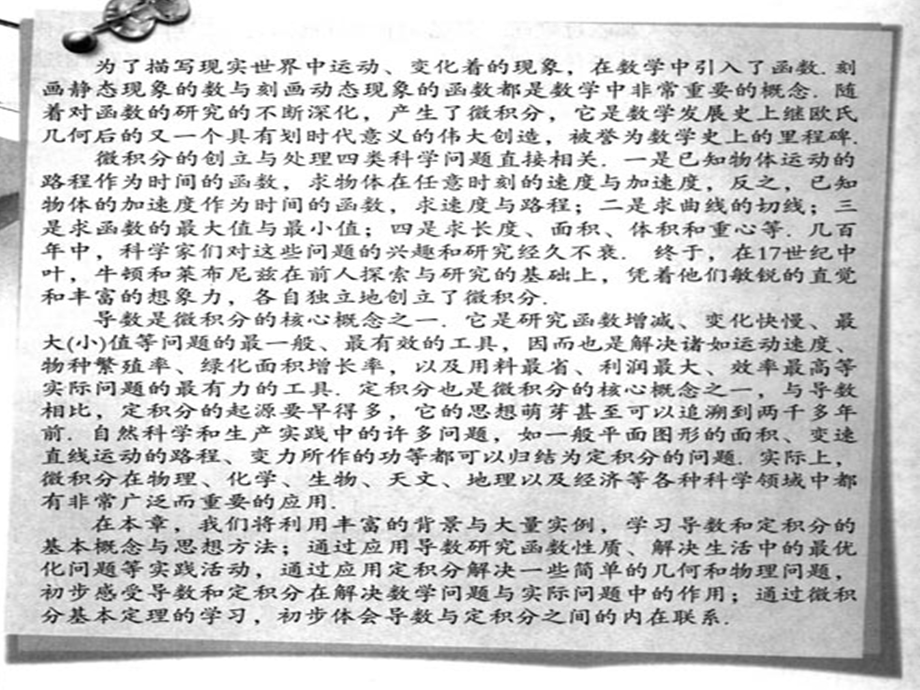 为了描写现实世界中运动、变化着的现象，在数学中引入了函数.刻
画静态现象的数与刻画动态现象的函数都是数学中非常重要的概念.随
着对函数的研究的不断深化，产生了微积分，它是数学发展史上继欧氏
几何后的又一个具有划时代意义的伟大创造，被誉为数学史上的里程碑.
微积分的创立与处理四类科学问题直接相关.一是已知物体运动的
路程作为时间的函数，求物体在任意时刻的速度与加速度，反之，已知
物体的加速度作为时间的函数，求速度与路程；二是求曲线的切线；三
是求函数的最大值与最小值；四是求长度、面积、体积和重心等.几百
年中，科学家们对这些问题的兴趣和研究经久不衰. 终于，在17世纪中
叶，牛顿和莱布尼兹在前人探索与研究的基础上，凭着他们敏锐的直觉
和丰富的想象力，各自独立地创立了微积分.
导数是微积分的核心概念之一.它是研究函数增减、变化快慢、最
大(小)值等问题的最一般、最有效的工具，因而也是解决诸如运动速度、
物种繁殖率、绿化面积增长率，以及用料最省、利润最大、效率最高等
实际问题的最有力的工具.定积分也是微积分的核心概念之一，与导数
相比，定积分的起源要早得多，它的思想萌芽甚至可以追溯到两千多年
前.自然科学和生产实践中的许多问题，如一般平面图形的面积、变速
直线运动的路程、变力所作的功等都可以归结为定积分的问题.实际上，
微积分在物理、化学、生物、天文、地理以及经济等各种科学领域中都
有非常广泛而重要的应用.
在本章，我们将利用丰富的背景与大量实例，学习导数和定积分的
基本概念与思想方法；通过应用导数研究函数性质、解决生活中的最优
化问题等实践活动，通过应用定积分解决一些简单的几何和物理问题，
初步感受导数和定积分在解决数学问题与实际问题中的作用；通过微积
分基本定理的学习，初步体会导数与定积分之间的内在联系.